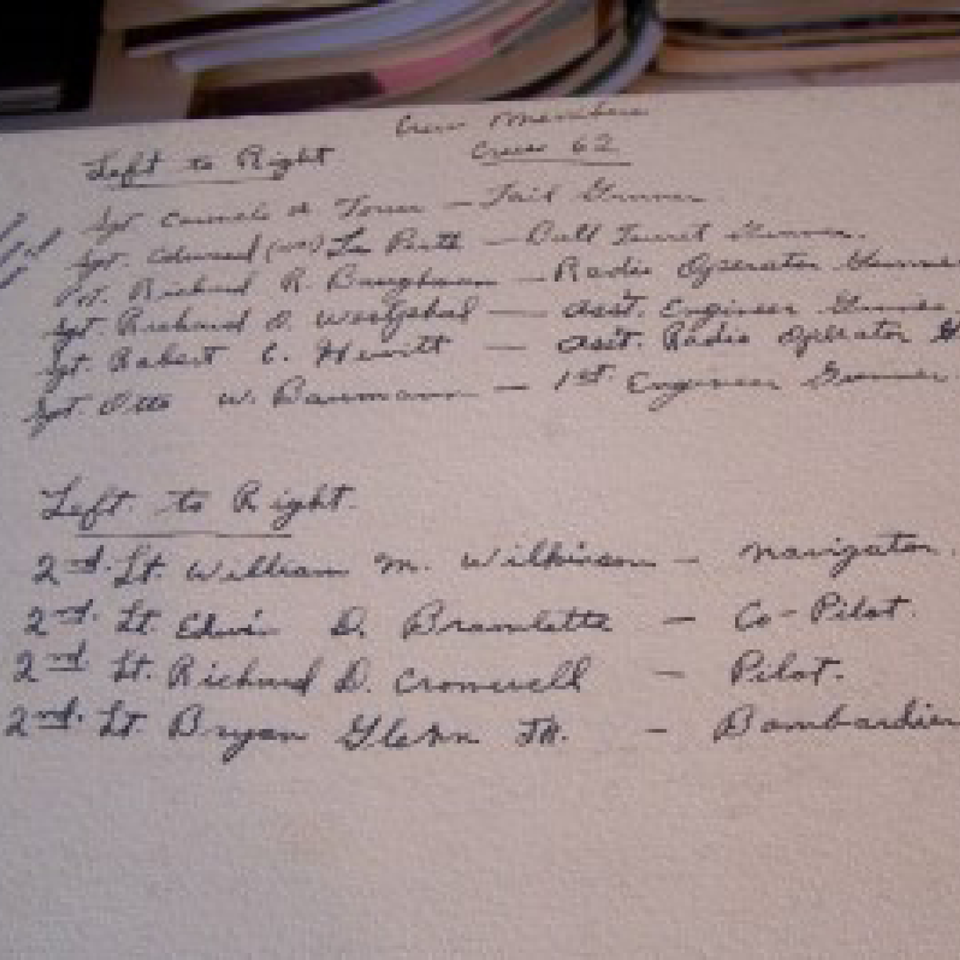 Crew Members
Crew 62
Left to Right
Sgt — Tail Gunner.
Sgt. Edward (NMI) La Porte — Ball Turret Gunner.
Richard R. Baughman — Radio Operator Gunner
Sgt. Richard O. Westphal — Asst. Engineer Gunner.
Sgt. Robert C. Hewitt — Asst. Radio Operator G
Sgt Otto W. Baumann — 1st. Engineer Gunner.
Left to Right.
2nd. Lt. William M. Wilkinson — Navigator.
2nd. Lt. Edwin D. Bramlette — Co-Pilot.
2nd Lt. Richard D. Cromwell — Pilot.
2nd. Lt. Bryan Glenn JR. — Bombardier